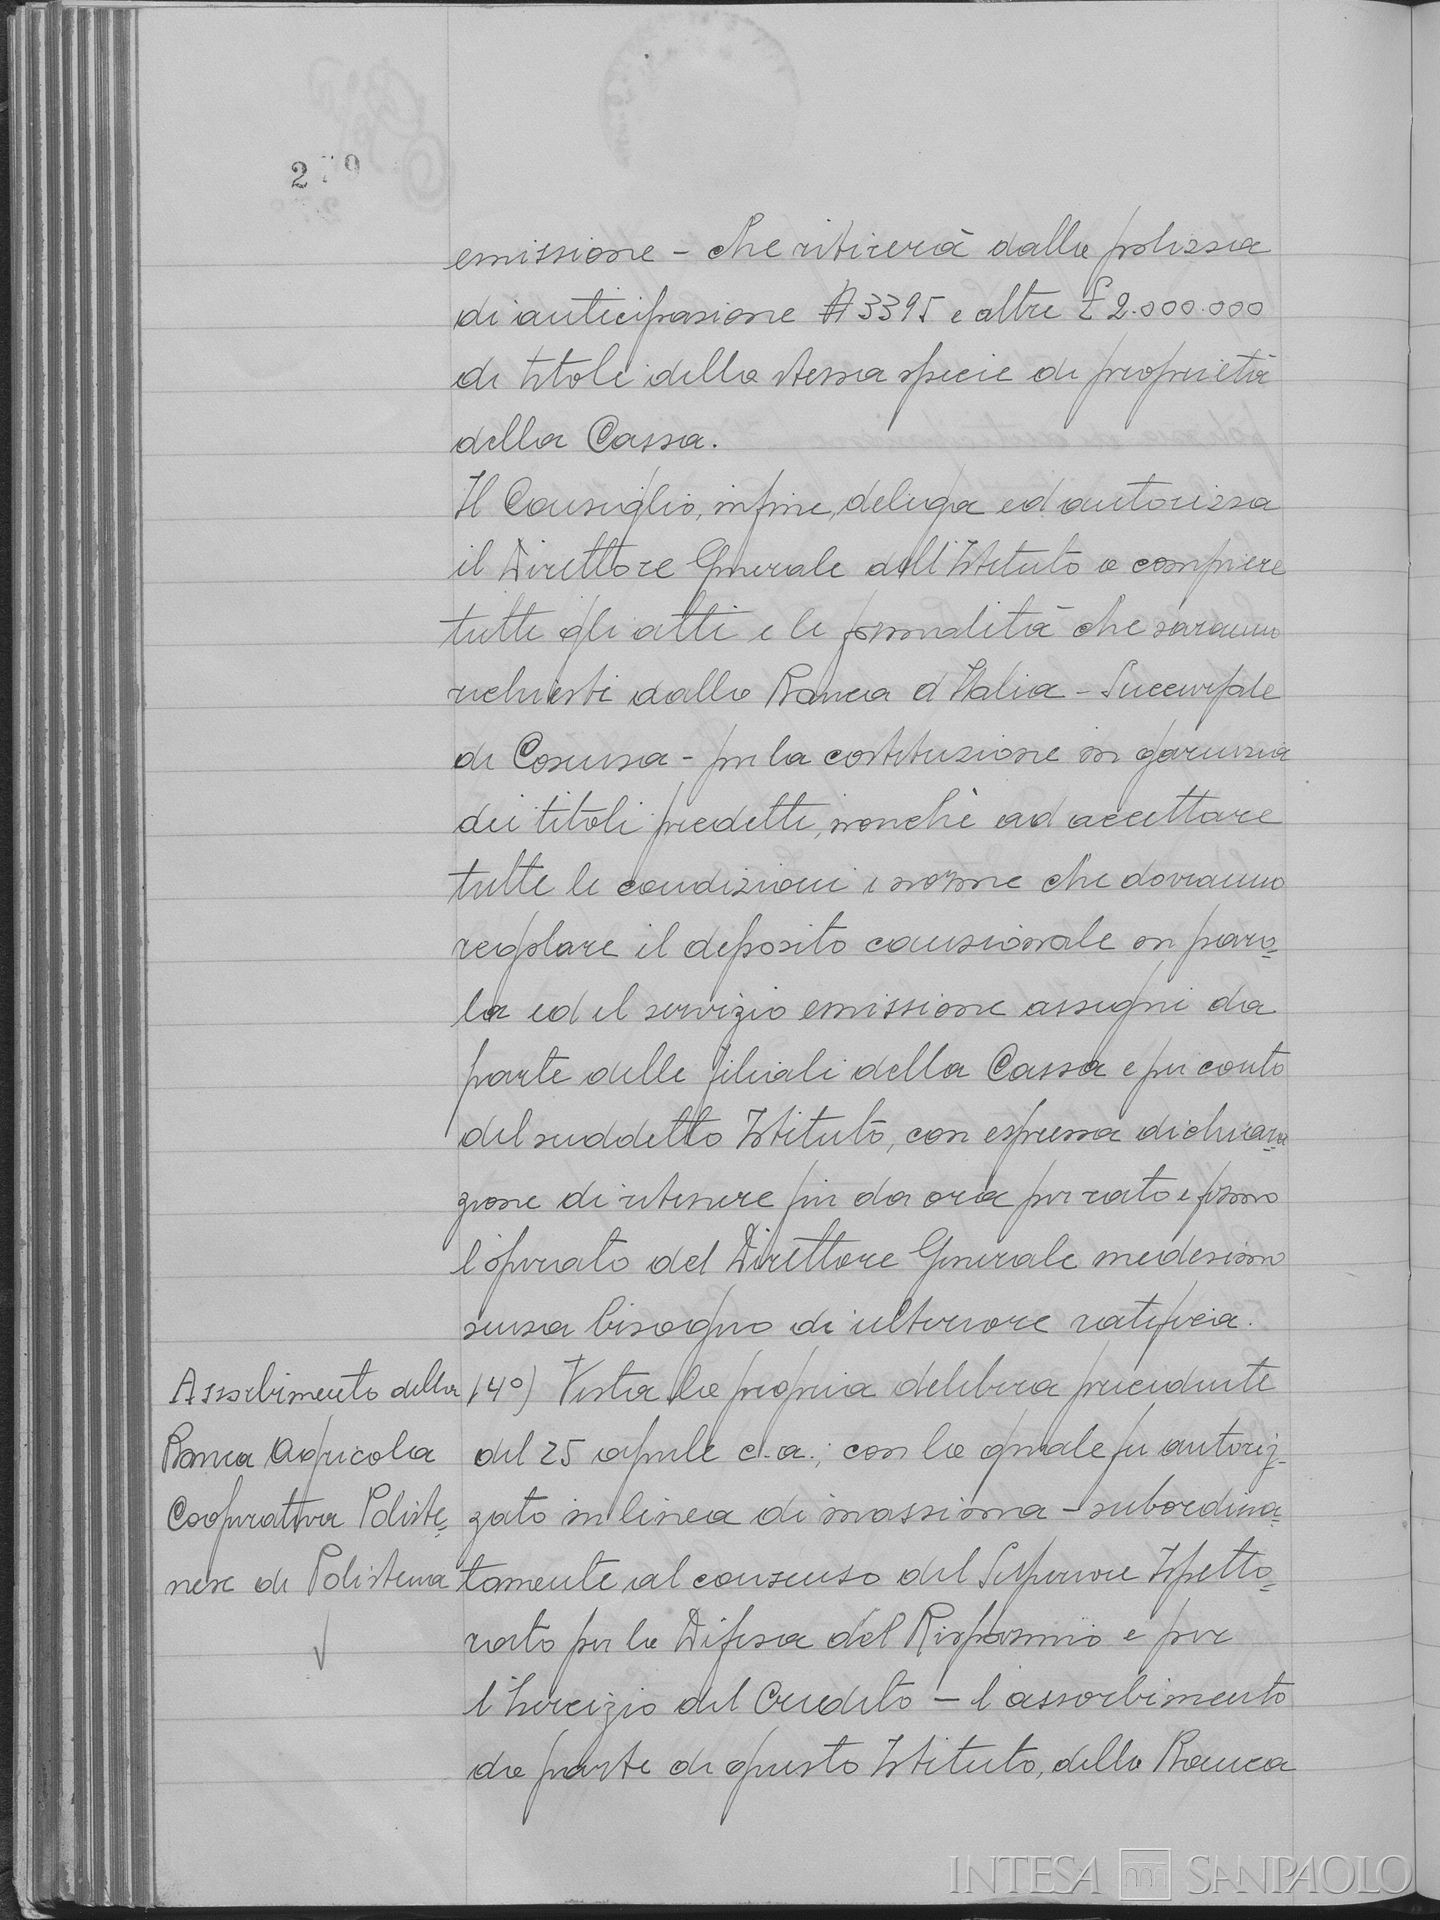 279
emissione - che ritirerà dalla polizza
di anticipazione N 3395 e altre £ 2.000.000
di titoli della stessa specie di proprietà
della Cassa.
Il Consiglio, infine, delega ed autorizza
il Direttore Generale dell'Istituto a compiere
tutti gli atti e le formalità che saranno
richiesti dalla Banca d'Italia - Succursale
di Cosenza - per la costituzione in garanzia
dei titoli predetti, nonchè ad accettare
tutte le condizioni e norme che dovranno
regolare il deposito cauzionale in paro=
la ed il servizio emissione assegni da
parte delle filiali della Cassa e per conto
del suddetto Istituto, con espressa dichiara=
zione di ritenere fin da ora per rato e fermo
l'operato del Direttore Generale medesimo
senza bisogno di ulteriore ratifica.
Assorbimento della
Banca Agricola
Cooperativa Poliste=
nese di Polistena
14°) Vista la propria delibera precedente
del 25 aprile c.a.; con la quale fu autoriz=
zato in linea di massima - subordina=
tamente al consenso del Superiore Ispetto=
rato per la Difesa del Risparmio e per
l'Esercizio del Credito - l'assorbimento
da parte di questo Istituto, della Banca
INTESA SANPAOLO